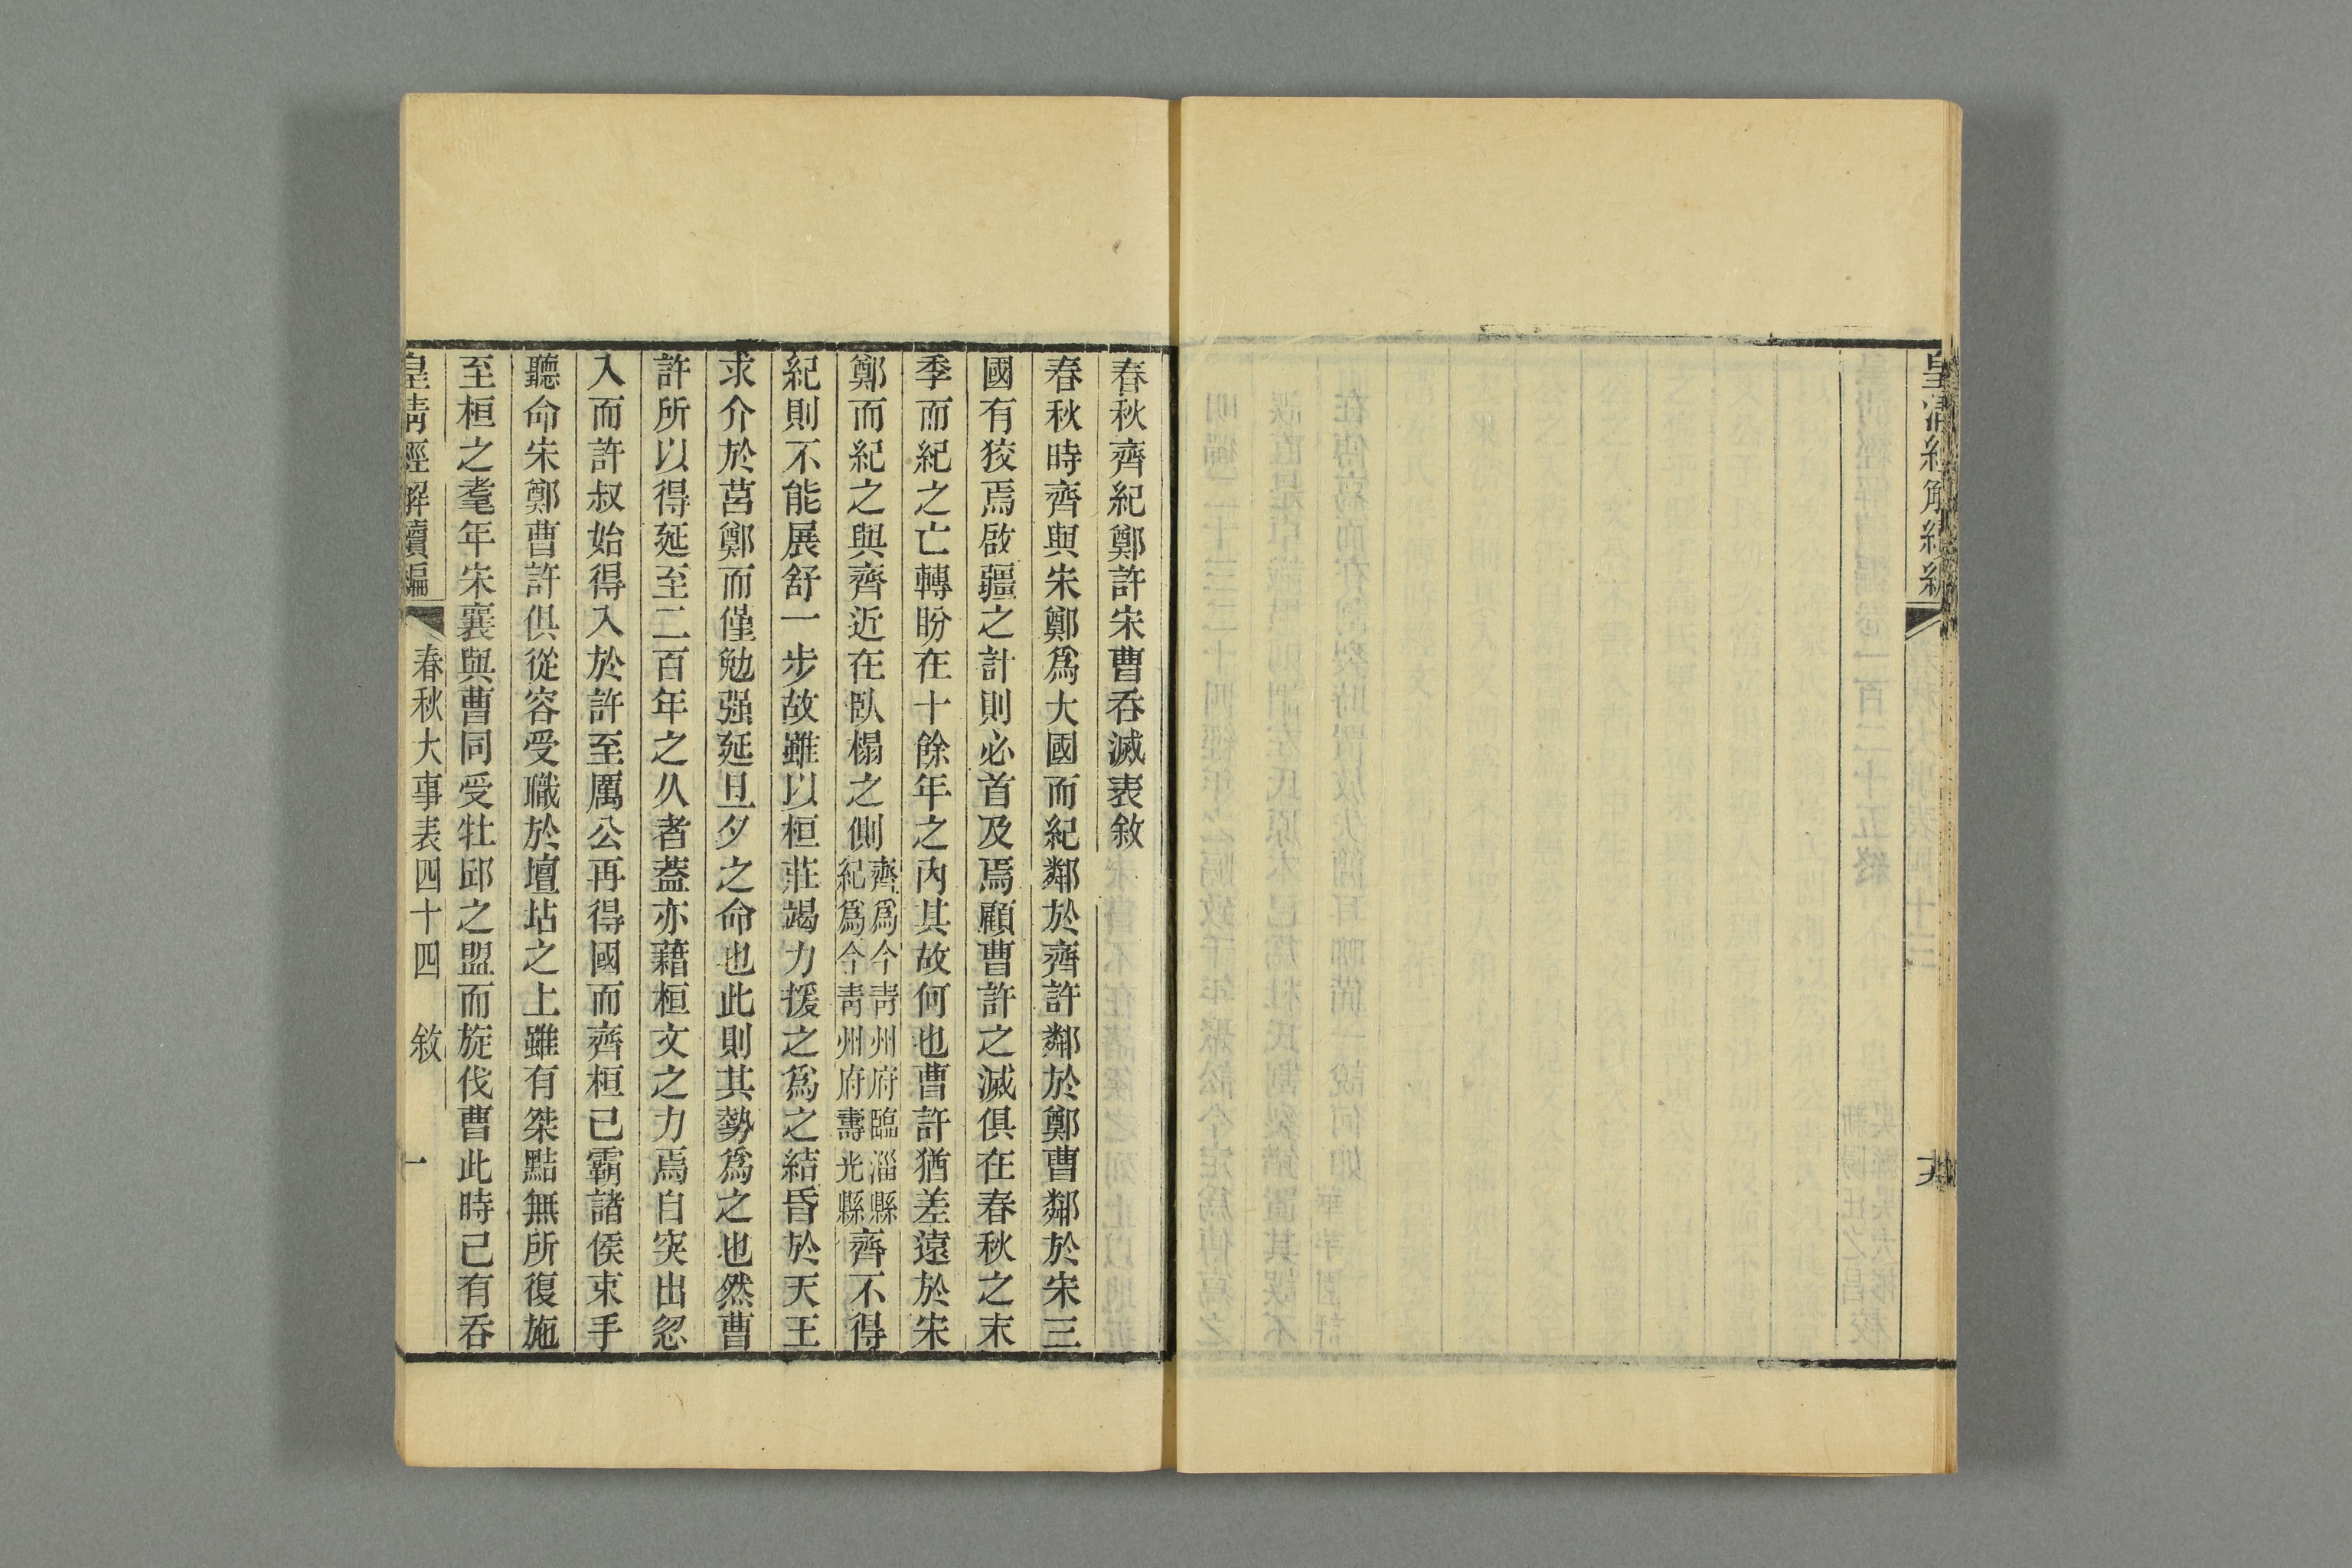 春秋齊紀鄭許宋曹吞滅表敘
春秋時齊與宋鄭爲大國而紀鄰於齊許鄰於鄭曹鄰於宋三
國有狡焉啟疆之計則必首及焉顧曹許之滅俱在春秋之末
季而紀之亡轉盻在十餘年之內其故何也曹許猶差遠於宋
鄭而紀之與齊近在臥榻之側齊爲今青州府臨淄縣紀爲今青州府壽光縣齊不得
紀則不能展舒一步故雖以桓莊竭力援之爲之結昏於天王
求介於莒鄭而僅勉强延旦夕之命也此則其勢爲之也然曹
許所以得延至二百年之久者蓋亦藉桓文之力焉自突出忽
入而許叔始得入於許至厲公再得國而齊桓已霸諸侯束手
聽命宋鄭曹許俱從容受職於壇坫之上雖有桀黠無所復施
至桓之耄年宋襄與曹同受牡邱之盟而旋伐曹此時已有吞
皇清經解續編 春秋大事表四十四 敘 一